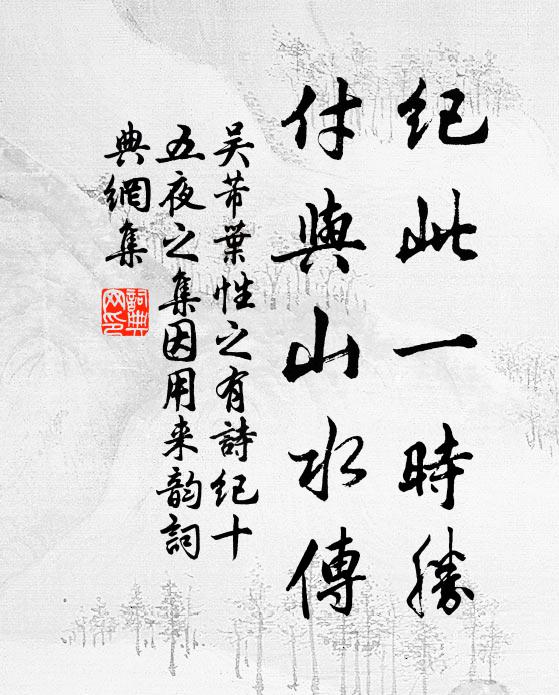 紀此一時勝
付與山水傳
吳芾葉性之有詩紀十
五夜之集因用来韵詞
典網集
詞典網印